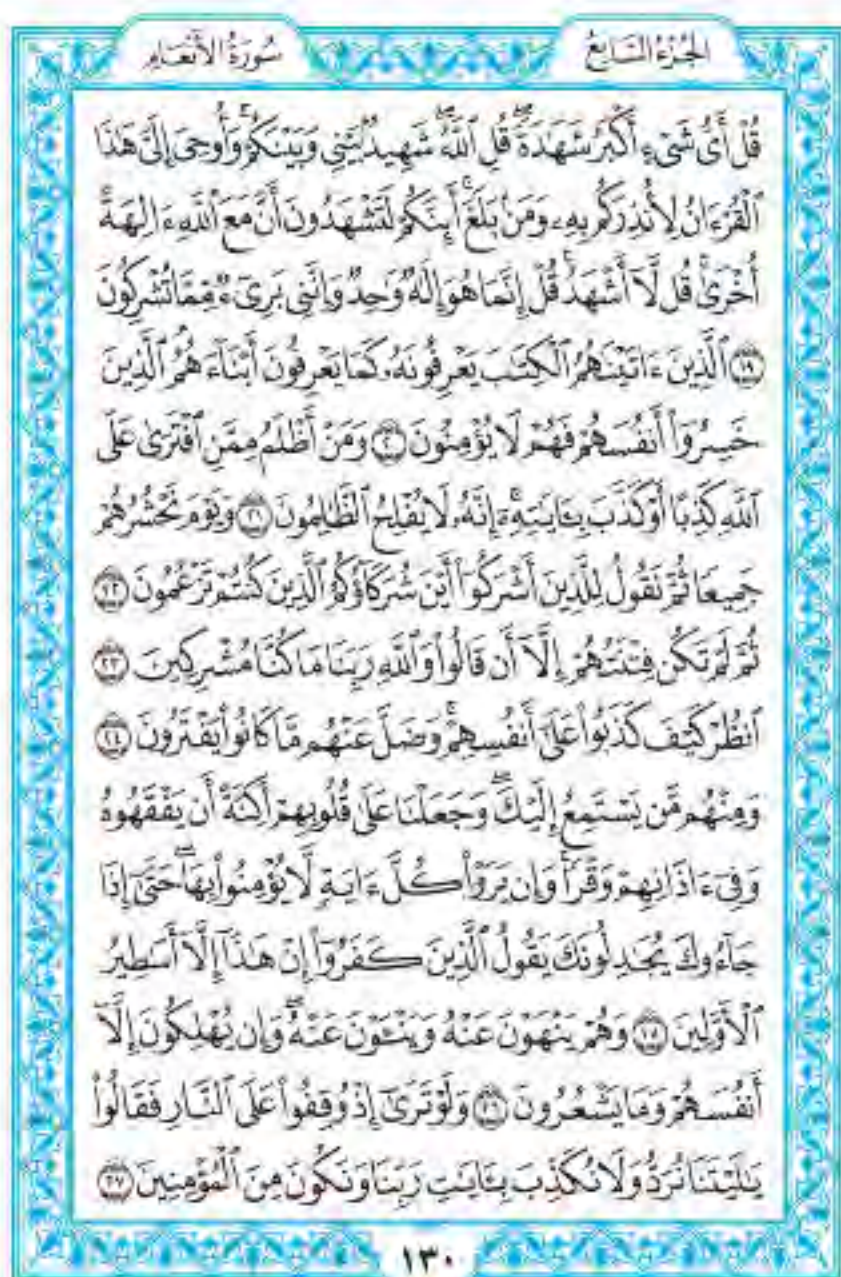 الجُزْءُ السَّابِعُ
سُورَةُ الأَنْعَامِ
قُلْ أَىُّ شَىْءٍ أَكْبَرُ شَهَٰدَةً ۖ قُلِ ٱللَّهُ ۖ شَهِيدٌۢ بَيْنِى وَبَيْنَكُمْ ۚ وَأُوحِىَ إِلَىَّ هَٰذَا
ٱلْقُرْءَانُ لِأُنذِرَكُم بِهِۦ وَمَنۢ بَلَغَ ۚ أَئِنَّكُمْ لَتَشْهَدُونَ أَنَّ مَعَ ٱللَّهِ ءَالِهَةً
أُخْرَىٰ ۚ قُل لَّآ أَشْهَدُ ۚ قُلْ إِنَّمَا هُوَ إِلَٰهٌ وَٰحِدٌ وَإِنَّنِى بَرِىٓءٌ مِّمَّا تُشْرِكُونَ
١٩ ٱلَّذِينَ ءَاتَيْنَٰهُمُ ٱلْكِتَٰبَ يَعْرِفُونَهُۥ كَمَا يَعْرِفُونَ أَبْنَآءَهُمُ ٱلَّذِينَ
خَسِرُوٓا۟ أَنفُسَهُمْ فَهُمْ لَا يُؤْمِنُونَ ٢٠ وَمَنْ أَظْلَمُ مِمَّنِ ٱفْتَرَىٰ عَلَى
ٱللَّهِ كَذِبًا أَوْ كَذَّبَ بِـَٔايَٰتِهِۦٓ ۗ إِنَّهُۥ لَا يُفْلِحُ ٱلظَّٰلِمُونَ ٢١ وَيَوْمَ نَحْشُرُهُمْ
جَمِيعًا ثُمَّ نَقُولُ لِلَّذِينَ أَشْرَكُوٓا۟ أَيْنَ شُرَكَآؤُكُمُ ٱلَّذِينَ كُنتُمْ تَزْعُمُونَ ٢٢
ثُمَّ لَمْ تَكُن فِتْنَتُهُمْ إِلَّآ أَن قَالُوا۟ وَٱللَّهِ رَبِّنَا مَا كُنَّا مُشْرِكِينَ ٢٣
ٱنظُرْ كَيْفَ كَذَبُوا۟ عَلَىٰٓ أَنفُسِهِمْ ۚ وَضَلَّ عَنْهُم مَّا كَانُوا۟ يَفْتَرُونَ ٢٤
وَمِنْهُم مَّن يَسْتَمِعُ إِلَيْكَ ۖ وَجَعَلْنَا عَلَىٰ قُلُوبِهِمْ أَكِنَّةً أَن يَفْقَهُوهُ
وَفِىٓ ءَاذَانِهِمْ وَقْرًا ۚ وَإِن يَرَوْا۟ كُلَّ ءَايَةٍ لَّا يُؤْمِنُوا۟ بِهَا ۚ حَتَّىٰٓ إِذَا
جَآءُوكَ يُجَٰدِلُونَكَ يَقُولُ ٱلَّذِينَ كَفَرُوٓا۟ إِنْ هَٰذَآ إِلَّآ أَسَٰطِيرُ
ٱلْأَوَّلِينَ ٢٥ وَهُمْ يَنْهَوْنَ عَنْهُ وَيَنْـَٔوْنَ عَنْهُ ۖ وَإِن يُهْلِكُونَ إِلَّآ
أَنفُسَهُمْ وَمَا يَشْعُرُونَ ٢٦ وَلَوْ تَرَىٰٓ إِذْ وُقِفُوا۟ عَلَى ٱلنَّارِ فَقَالُوا۟
يَٰلَيْتَنَا نُرَدُّ وَلَا نُكَذِّبَ بِـَٔايَٰتِ رَبِّنَا وَنَكُونَ مِنَ ٱلْمُؤْمِنِينَ ٢٧
١٣٠